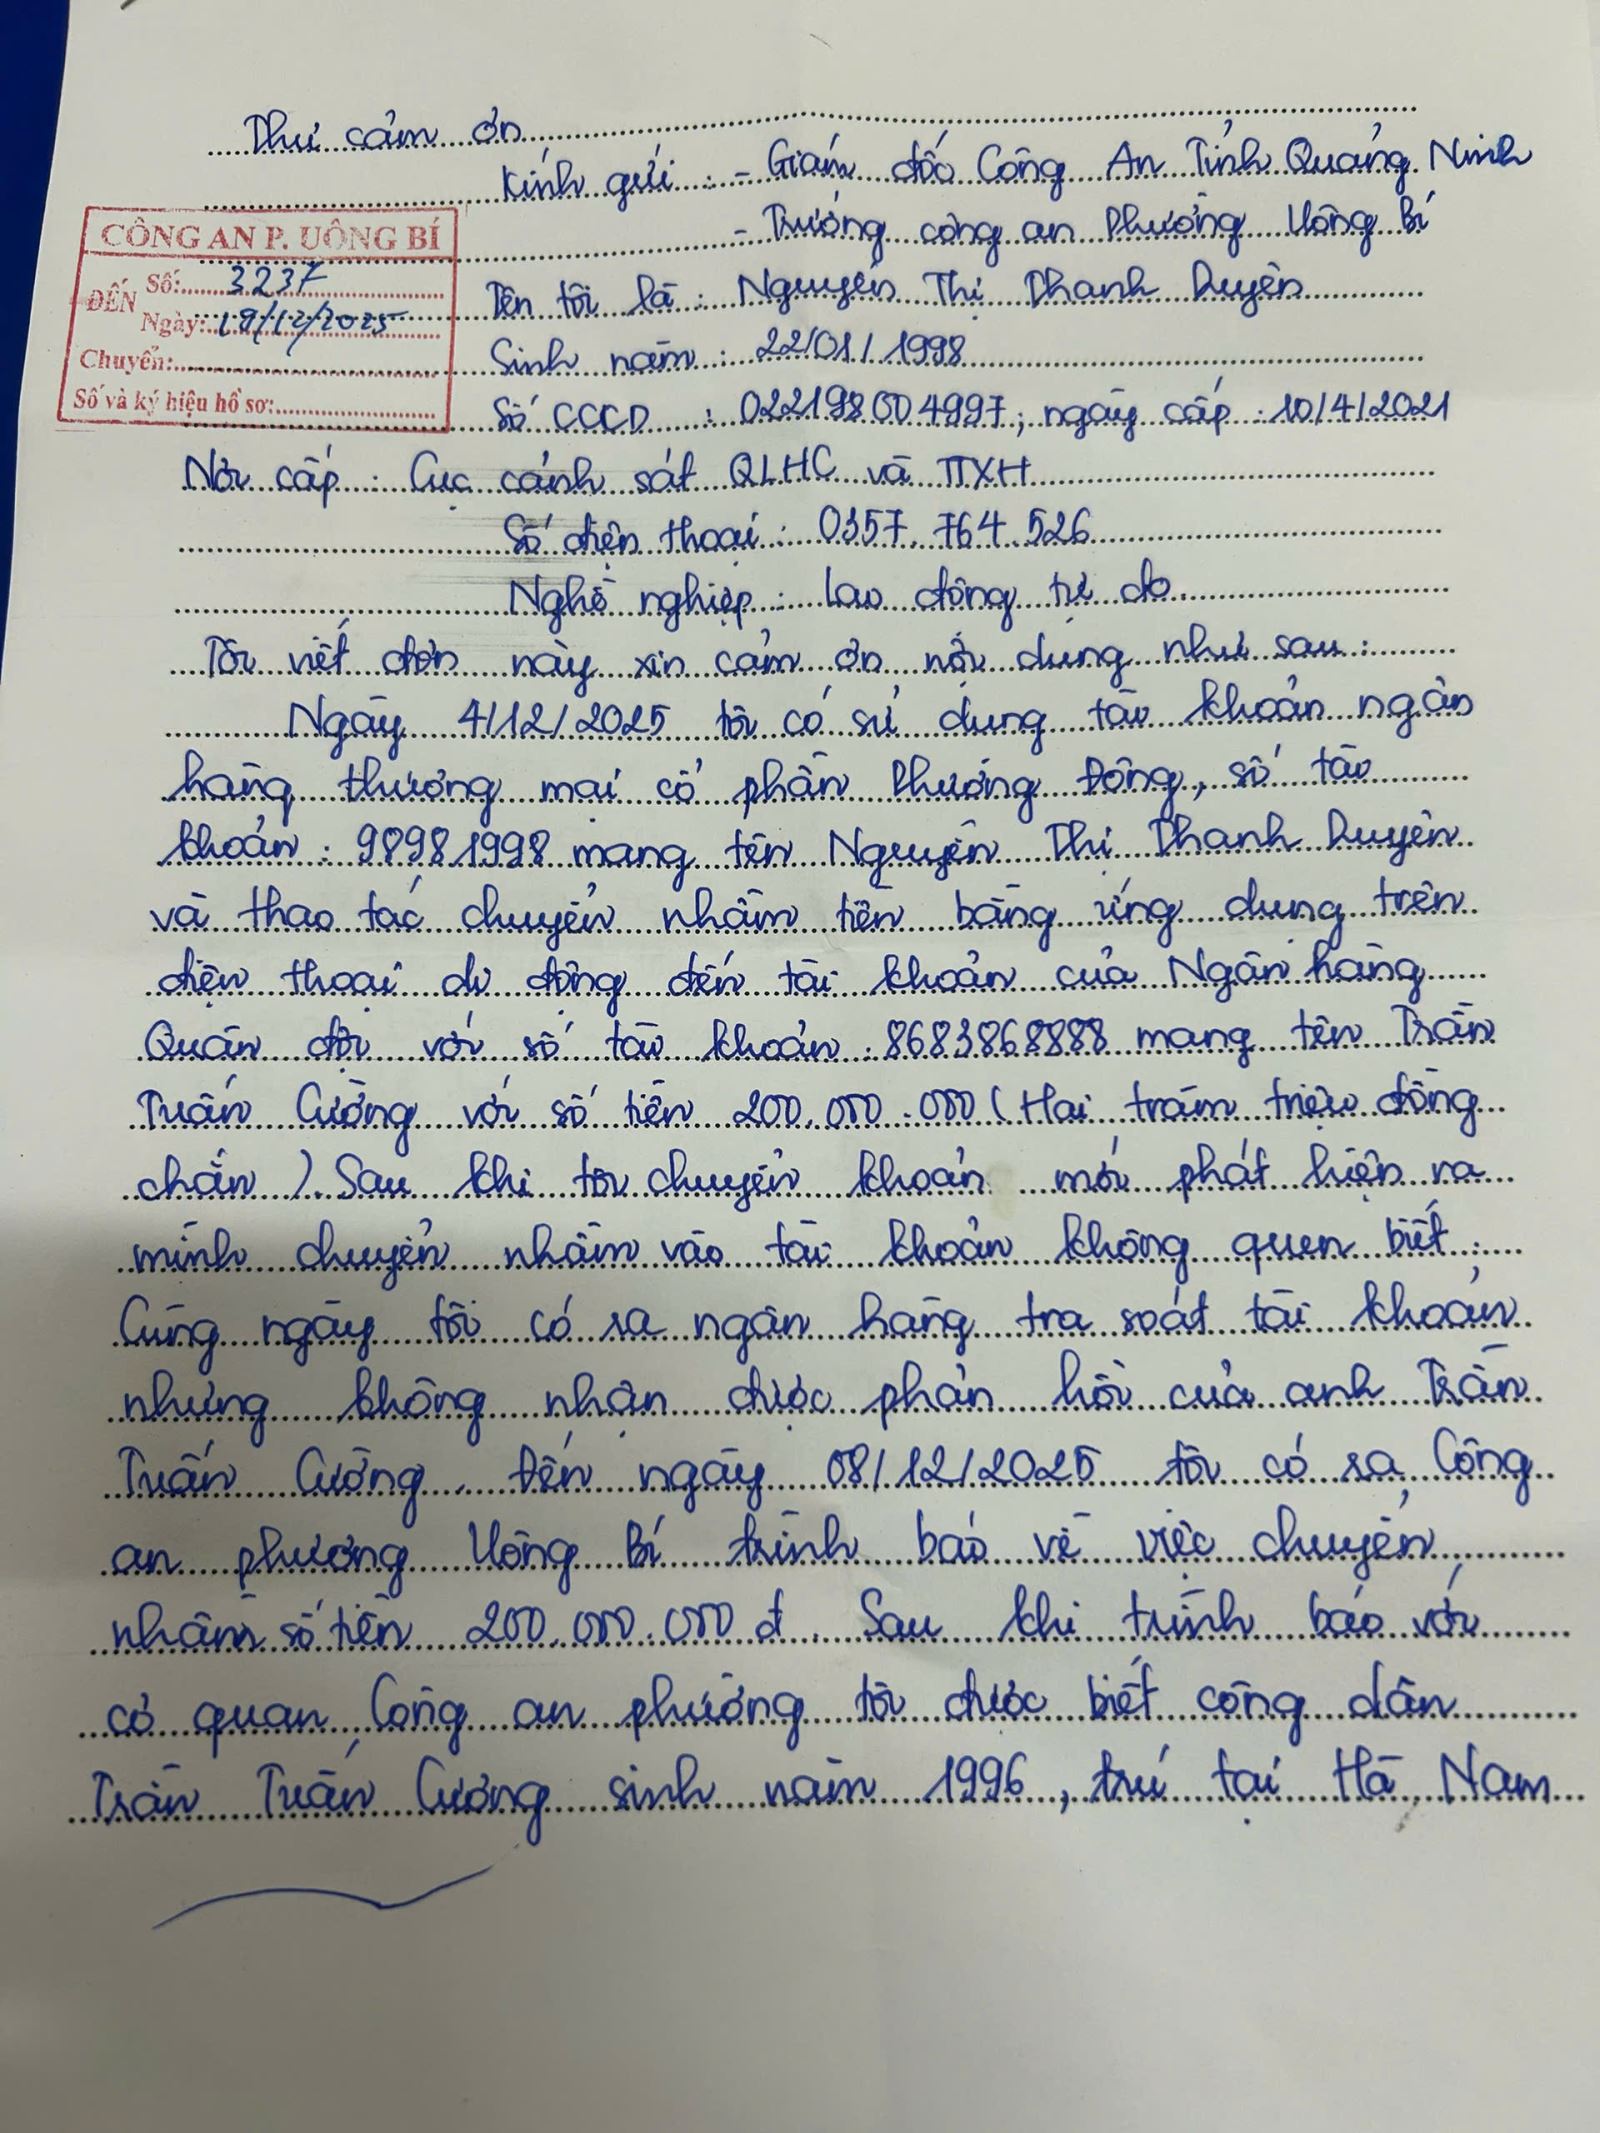 Thư cảm ơn
Kính gửi : - Giám đốc Công An Tỉnh Quảng Ninh
- Trưởng công an Phường Uông Bí
CÔNG AN P. UÔNG BÍ
ĐẾN
Số: 3237
Ngày: 19/12/2025
Chuyển:
Số và ký hiệu hồ sơ:
Tên tôi là : Nguyễn Thị Thanh Duyên
Sinh năm : 22/01/1998
Số CCCD : 022198004997; ngày cấp : 10/4/2021
Nơi cấp : Cục cảnh sát QLHC và TTXH
Số điện thoại : 0357.764.526
Nghề nghiệp : Lao động tự do
Tôi viết đơn này xin cảm ơn nội dung như sau :
Ngày 4/12/2025 tôi có sử dụng tài khoản ngân
hàng thương mại cổ phần Phương Đông, số tài
khoản : 98981998 mang tên Nguyễn Thị Thanh Duyên
và thao tác chuyển nhầm tiền bằng ứng dụng trên
điện thoại di động đến tài khoản của Ngân hàng
Quân đội với số tài khoản : 8683868888 mang tên Trần
Tuấn Cường với số tiền 200.000.000 ( Hai trăm triệu đồng
chẵn ). Sau khi tôi chuyển khoản mới phát hiện ra
mình chuyển nhầm vào tài khoản không quen biết.
Cùng ngày tôi có ra ngân hàng tra soát tài khoản
nhưng không nhận được phản hồi của anh Trần
Tuấn Cường. Đến ngày 08/12/2025 tôi có ra Công
an phường Uông Bí trình báo về việc chuyển
nhầm số tiền 200.000.000 đ. Sau khi trình báo với
cơ quan Công an phường tôi được biết công dân
Trần Tuấn Cương sinh năm 1996, trú tại Hà Nam